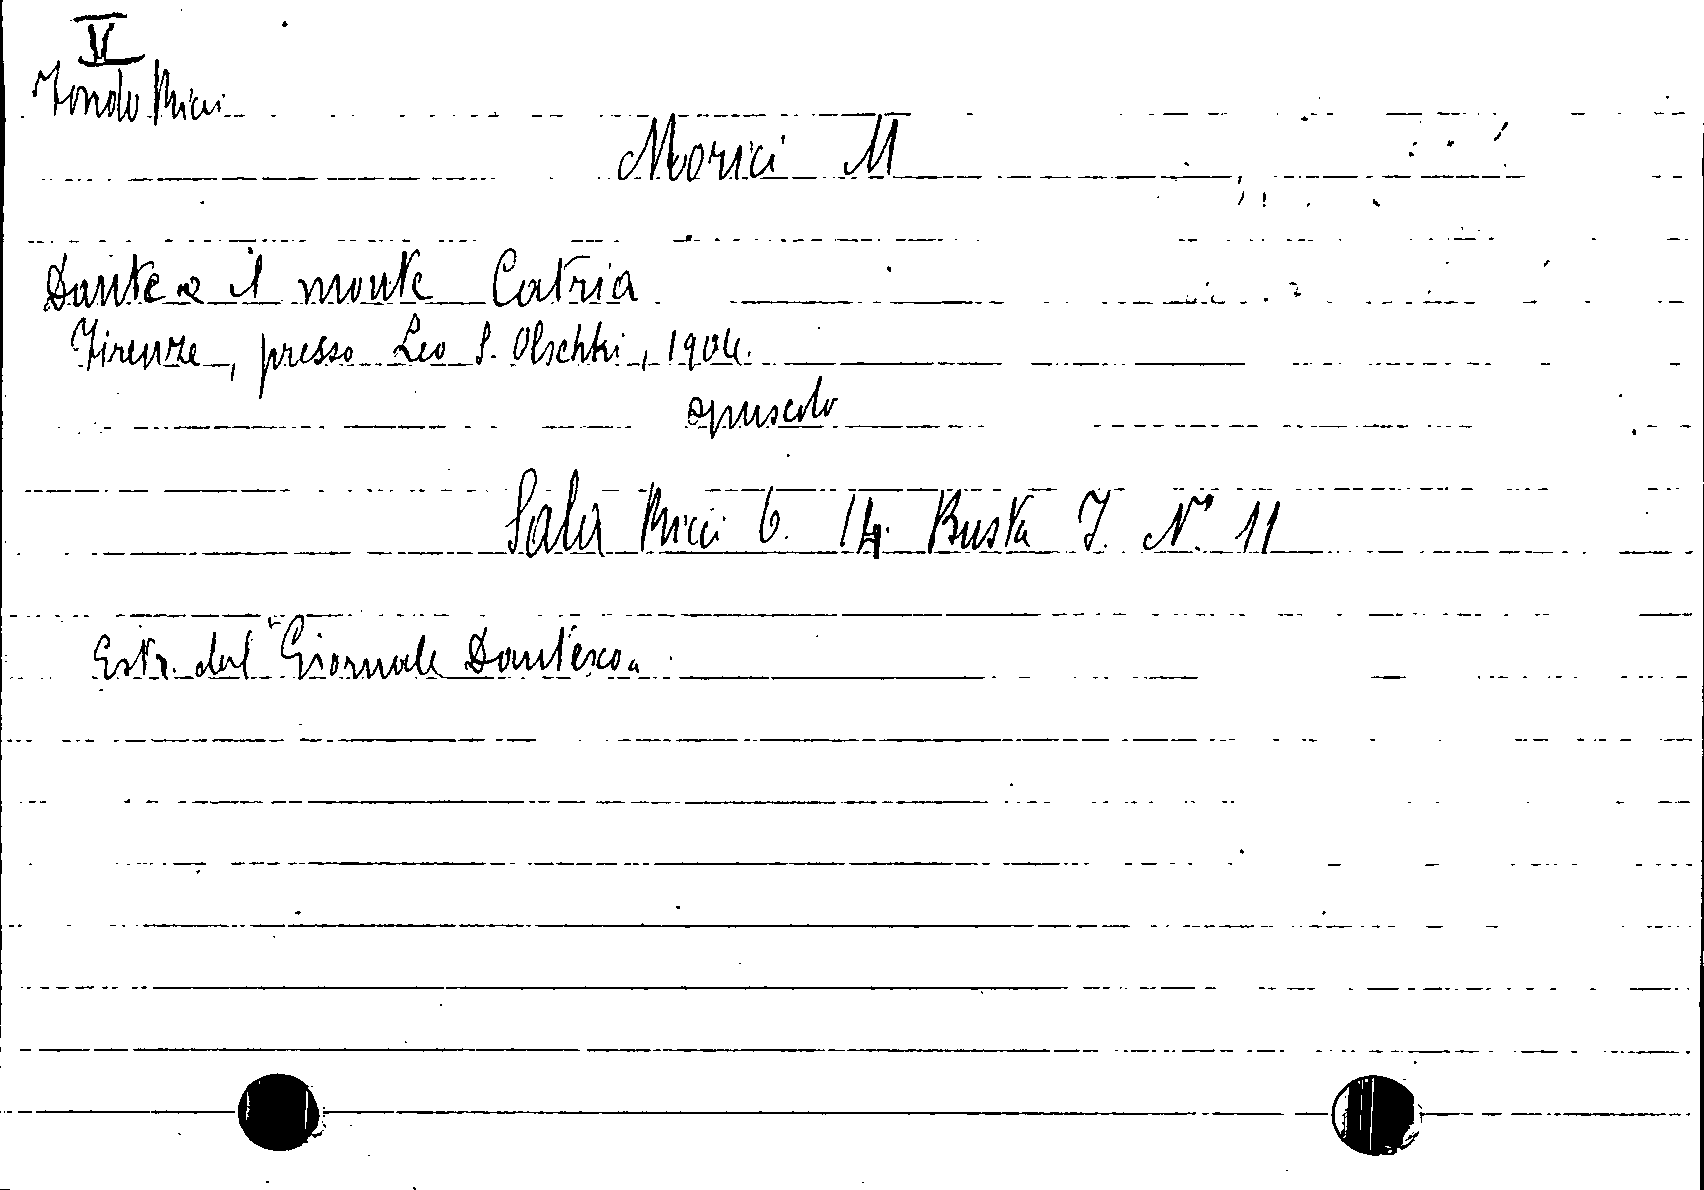 V
Fondo Ricci
Morici M
Dante e il monte Catria
Firenze, presso Leo S. Olschki, 1904.
opuscolo
Sala Ricci 6. 14. Busta I. N° 11
Estr. dal "Giornale Dantesco"